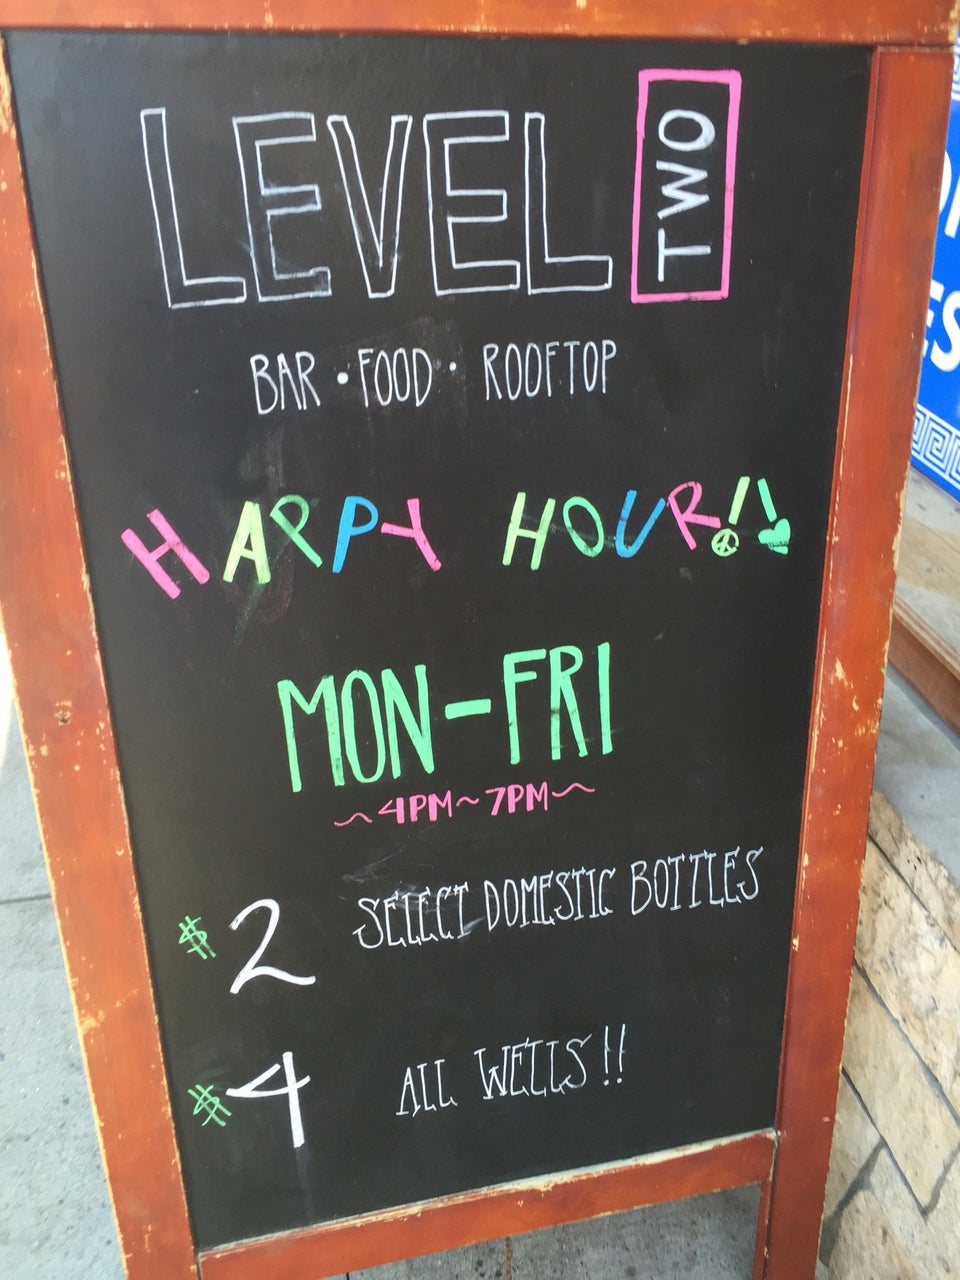 LEVEL TWO
BAR · FOOD · ROOFTOP
HAPPY HOUR!!
MON-FRI
~4PM~7PM~
$2 SELECT DOMESTIC BOTTLES
$4 ALL WELLS!!